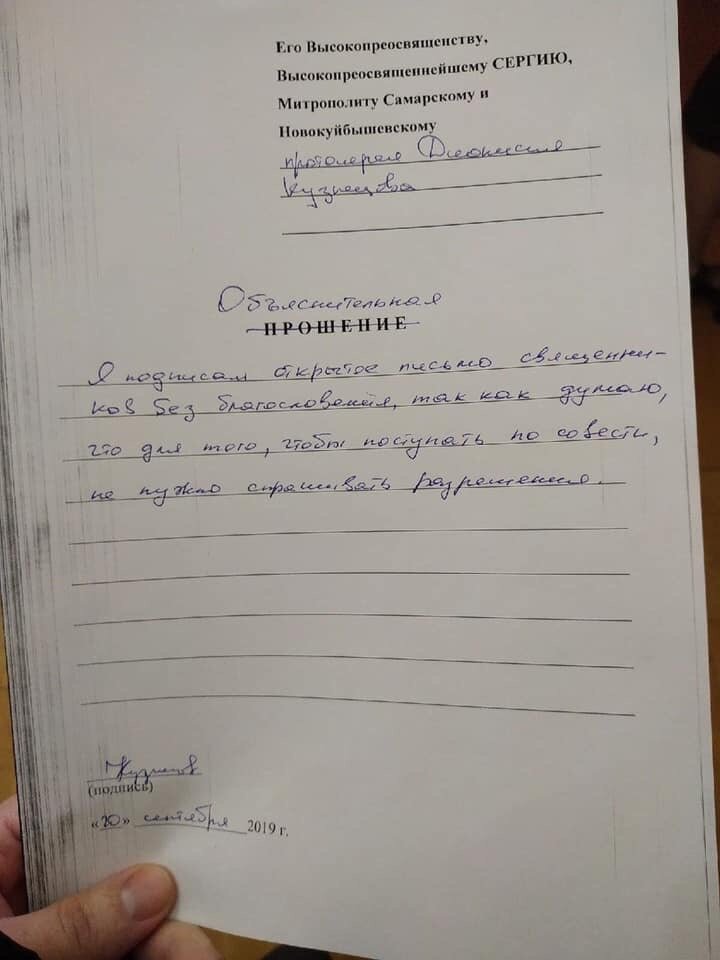 Его Высокопреосвященству,
Высокопреосвященнейшему СЕРГИЮ,
Митрополиту Самарскому и
Новокуйбышевскому
протоиерея Дионисия
Кузнецова
Объяснительная
ПРОШЕНИЕ
Я подписал открытое письмо священни-
ков без благословения, так как думаю,
что для того, чтобы поступать по совести,
не нужно спрашивать разрешения.
Кузнецов
(подпись)
«20» сентября 2019 г.